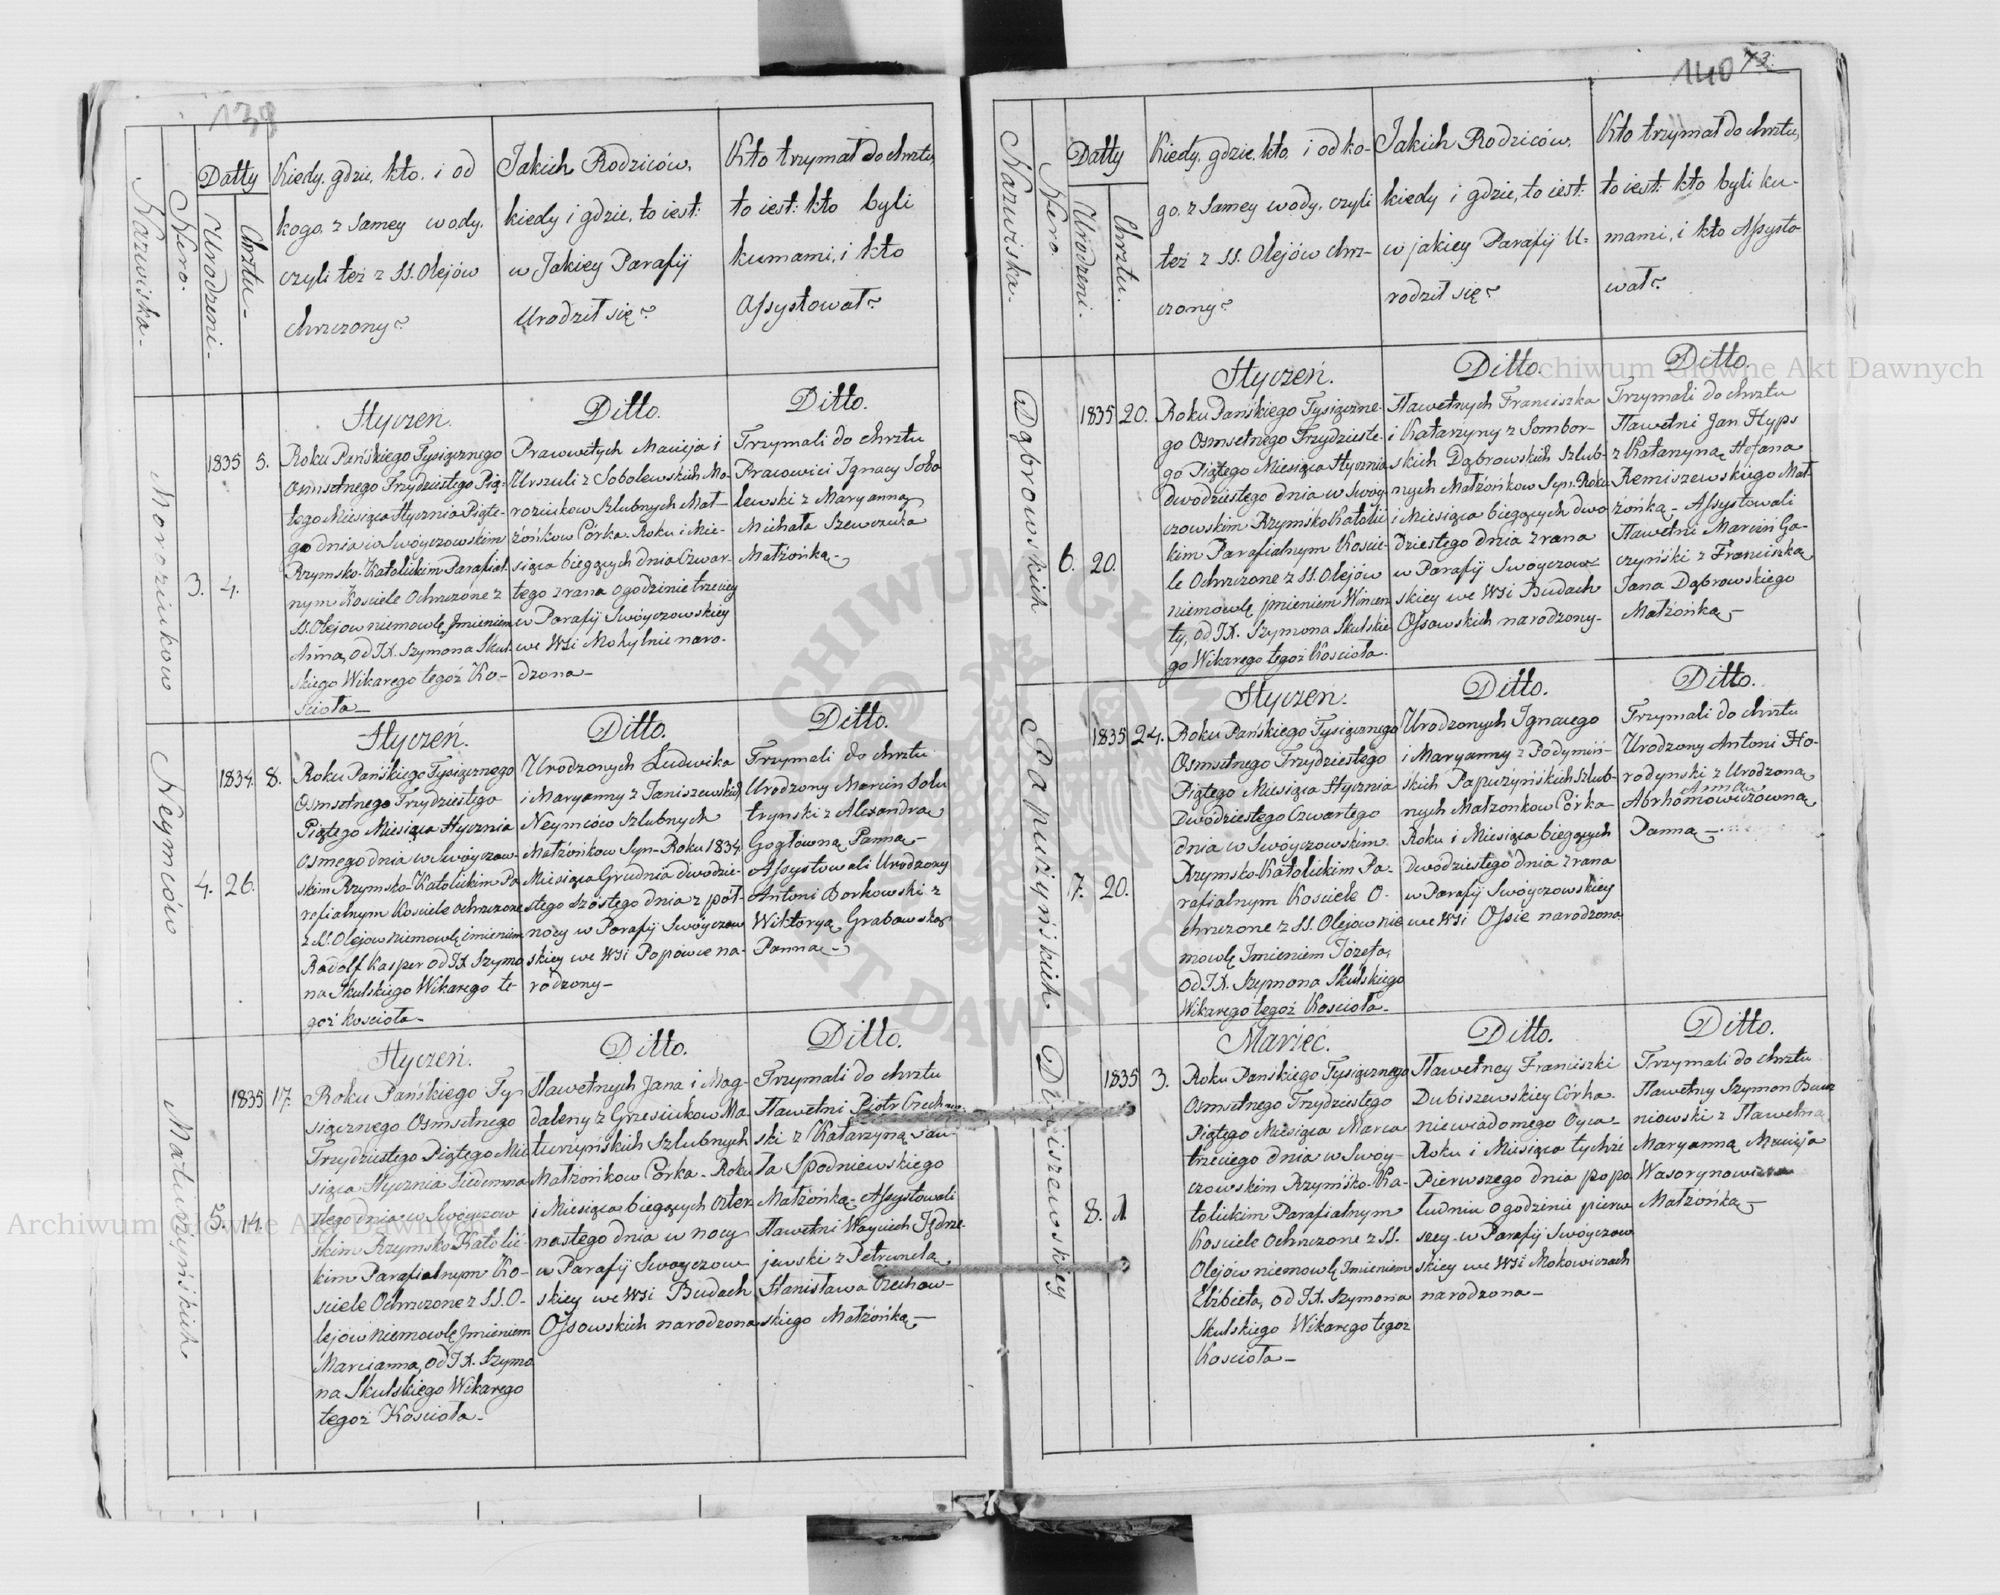 139
Nazwiska.
Nero.
Datty
Urodzeni.
Chrztu.
Kiedy, gdzie, kto, i od
kogo, z samey wody,
czyli też z SS. Olejów
chrzczony?
Jakich Rodziców,
kiedy i gdzie, to iest:
w Jakiey Parafij
Urodził się?
Kto trzymał do chrztu,
to iest: kto byli
kumami, i kto
Assystował?
Moroziuków
3.
1835
4.
5.
Styczeń.
Roku Pańskiego Tysiącznego
Osmsetnego Trzydziestego Pią-
tego Miesiąca Stycznia Piąte-
go dnia w Swóyczowskim
Rzymsko-Katolickim Parafial-
nym Kościele Ochrzczone z
SS. Olejow niemowlę Jmieniem
Anna, od JX. Szymona Skul-
skiego Wikarego tegoż Ko-
scioła_
Ditto.
Prawowitych Macieja i
Urszuli z Sobolewskich Mo-
roziuków Szlubnych Mał-
żonków Córka. Roku i Mie-
siąca bieżących dnia Czwar-
tego z rana o godzinie trzeciey
w Parafij Swóyczowskiey
we WSi Mohylnie naro-
dzona_
Ditto.
Trzymali do chrztu
Pracowici Jgnacy Sobo
lewski z Maryanną
Michała Szewczuka
Małżonką_
Neymców
4.
1834.
26.
8.
Styczeń.
Roku Pańskiego Tysiącznego
Osmsetnego Trzydziestego
Piątego Miesiąca Stycznia
Osmego dnia w Swóyczow-
skim Rzymsko Katolickim Pa
rafialnym Kościele ochrzczone
z SS. Olejow niemowlę imieniem
Radolf Kasper od JX. Szymo
na Skulskiego Wikarego te-
goż kościoła_
Ditto.
Urodzonych Ludwika
i Maryanny z Janiszewskich
Neymców Szlubnych
Małżonkow Syn_ Roku 1834.
Miesiąca Grudnia dwódzie-
stego szóstego dnia z pół-
nocy w Parafij Swóyczow
skiey we WSi Popówce na-
rodzony_
Ditto.
Trzymali do chrztu
Urodzony Marcin Solu
trynski z Alexandrą
Gogłowną Panną_
Assystowali Urodzony
Antoni Borkowski z
Wiktoryą Grabowską
Panną_
Maturzyńskich
5.
1835
14.
17.
Styczeń.
Roku Pańskiego Ty-
siącznego Osmsetnego
Trzydziestego Piątego Mie
siąca Stycznia Siedemna
stego dnia w Swóyczow
skim Rzymsko-Katolic-
kim Parafialnym Ko-
sciele Ochrzczone z SS. O-
lejów niemowlę Jmieniem
Marcianna, od JX. Szymo
na Skulskiego Wikarego
tegoż Kościoła_
Ditto.
Sławetnych Jana i Mag-
daleny z Grzesiukow Ma-
turzyńskich Szlubnych
Małżonkow Córka_ Roku
i Miesiąca bieżących czter
nastego dnia w nocy
w Parafij Swoyczow
skiey we WSi Budach
Ossowskich narodzona
Ditto.
Trzymali do chrztu
Sławetni Piotr Czechow-
ski z Katarzyną
Spodniewskiego
Małżonką_ Assystowali
Sławetni Woyciech Jędrze-
jewski z Petrunelą
Stanisława Czechow-
skiego Małżonką_
140
73.
Nazwiska.
Nero.
Datty
Urodzeni.
Chrztu.
Kiedy, gdzie, kto, i od ko-
go, z samey wody, czyli
też z SS. Olejów chrz-
czony?
Jakich Rodziców,
kiedy i gdzie, to iest:
w jakiey Parafij U-
rodził się?
Kto trzymał do chrztu,
to iest: kto byli ku-
mami, i kto Assysto-
wał?
Dąbrowskich
6.
1835
20.
20.
Styczeń.
Roku Pańskiego Tysiączne-
go Osmsetnego Trzydzieste-
go Piątego Miesiąca Stycznia
dwódziestego dnia w Swóy-
czowskim Rzymsko Katolic
kim Parafialnym Koście-
le Ochrzczone z SS. Olejów
niemowlę jmieniem Wincen
ty, od JX. Szymona Skulskie-
go Wikarego tegoż Kościoła.
Ditto.
Sławetnych Franciszka
i Katarzyny z Sombor-
skich Dąbrowskich Szlub-
nych Małżonkow Syn. Roku
i Miesiąca bieżących dwo
dziestego dnia z rana
w Parafij Swóyczow-
skiey we WSi Budach
Ossowskich narodzony_
Ditto.
Trzymali do chrztu
Sławetni Jan Hyps
z Katarzyną Stefana
Remiszewskiego Mał-
żonką_ Assystowali
Sławetni Marcin Ga-
czyński z Franciszką
Jana Dąbrowskiego
Małżonką_
Papużyńskich
7.
1835
20.
24.
Styczeń.
Roku Pańskiego Tysiącznego
Osmsetnego Trzydziestego
Piątego Miesiąca Stycznia
Dwódziestego Czwartego
dnia w Swóyczowskim
Rzymsko-Katolickim Pa-
rafialnym Kościele O-
chrzczone z SS. Olejow nie
mowlę Jmieniem Józefa,
od JX. Szymona Skulskiego
Wikarego tegoż Kościoła_
Ditto.
Urodzonych Jgnacego
i Maryanny z Podymiń-
skich Papużyńskich Szlub-
nych Małżonkow Córka
Roku i Miesiąca bieżących
dwodziestego dnia z rana
w Parafij Swóyczowskiey
we WSi Ossie narodzona
Ditto.
Trzymali do chrztu
Urodzony Antoni Ho-
rodynski z Urodzoną
Anną
Abrhomowiczówną
Panną_
Dubiszewskiey
8.
1835
1.
3.
Marzec.
Roku Panskiego Tysiącznego
Osmsetnego Trzydziestego
Piątego Miesiąca Marca
trzeciego dnia w Swóy-
czowskim Rzymsko-Ka-
tolickim Parafialnym
Kościele Ochrzczone z SS.
Olejów niemowlę Jmieniem
Elżbieta, od JX. Szymona
Skulskiego Wikarego tegoż
Kościoła_
Ditto.
Sławetney Franciszki
Dubiszewskiey Córka
niewiadomego Oyca_
Roku i Miesiąca tychże
Pierwszego dnia popo
łudniu o godzinie pierw
szey w Parafij Swóyczow
skiey we WSi Mokowiczach
narodzona_
Ditto.
Trzymali do chrztu
Sławetny Szymon
niowski z Sławetną
Maryanną Macieja
Małżonką_
Archiwum Główne Akt Dawnych
Archiwum Główne Akt Dawnych